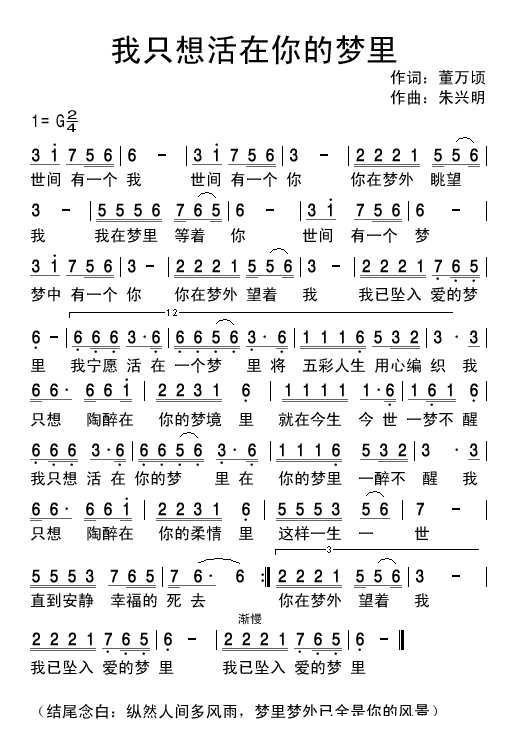 我只想活在你的梦里
作词：董万顷
作曲：朱兴明
1=G 2/4
3 1 7 5 6 | 6 - | 3 1 7 5 6 | 3 - | 2 2 2 1 5 5 6 |
世间 有一个 我 世间 有一个 你 你在梦外 眺望
3 - | 5 5 5 6 7 6 5 | 6 - | 3 1 7 5 6 | 6 - |
我 我在梦里 等着 你 世间 有一个 梦
3 1 7 5 6 | 3 - | 2 2 2 1 5 5 6 | 3 - | 2 2 2 1 7 6 5 |
梦中 有一个 你 你在梦外 望着 我 我已坠入 爱的梦
12
6 - | 6 6 6 3·6 | 6 6 5 6 3·6 | 1 1 1 6 5 3 2 | 3 ·3 |
里 我宁愿 活 在 一个梦 里将 五彩人生 用心编 织我
6 6· 6 6 1 | 2 2 3 1 6 | 1 1 1 1 1·6 | 1 6 1 6 |
只想 陶醉在 你的梦境 里 就在今生 今 世 一梦不 醒
6 6 6 3·6 | 6 6 5 6 3·6 | 1 1 1 6 5 3 2 | 3 ·3 |
我只想 活 在 你的梦 里在 你的梦里 一醉不 醒 我
6 6· 6 6 1 | 2 2 3 1 6 | 5 5 5 3 5 6 | 7 - |
只想 陶醉在 你的柔情 里 这样一生 一 世
3
5 5 5 3 7 6 5 | 7 6· 6 :| 2 2 2 1 5 5 6 | 3 - |
直到安静 幸福的 死 去 你在梦外 望着 我
渐慢
2 2 2 1 7 6 5 | 6 - | 2 2 2 1 7 6 5 | 6 - ‖
我已坠入 爱的梦 里 我已坠入 爱的梦 里
（结尾念白：纵然人间多风雨，梦里梦外已全是你的风景）